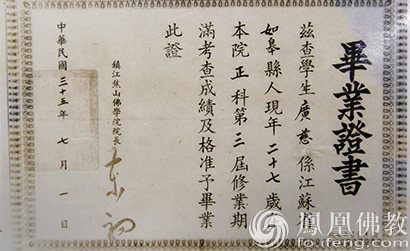 畢業證書
茲查學生廣慈係江蘇省
如皋縣人現年二十七歲在
本院正科第三屆修業期
滿考查成績及格准予畢業
此證
鎮江焦山佛學院院長
東初
中華民國三十五年七月一日
鳳凰佛教
fo.ifeng.com